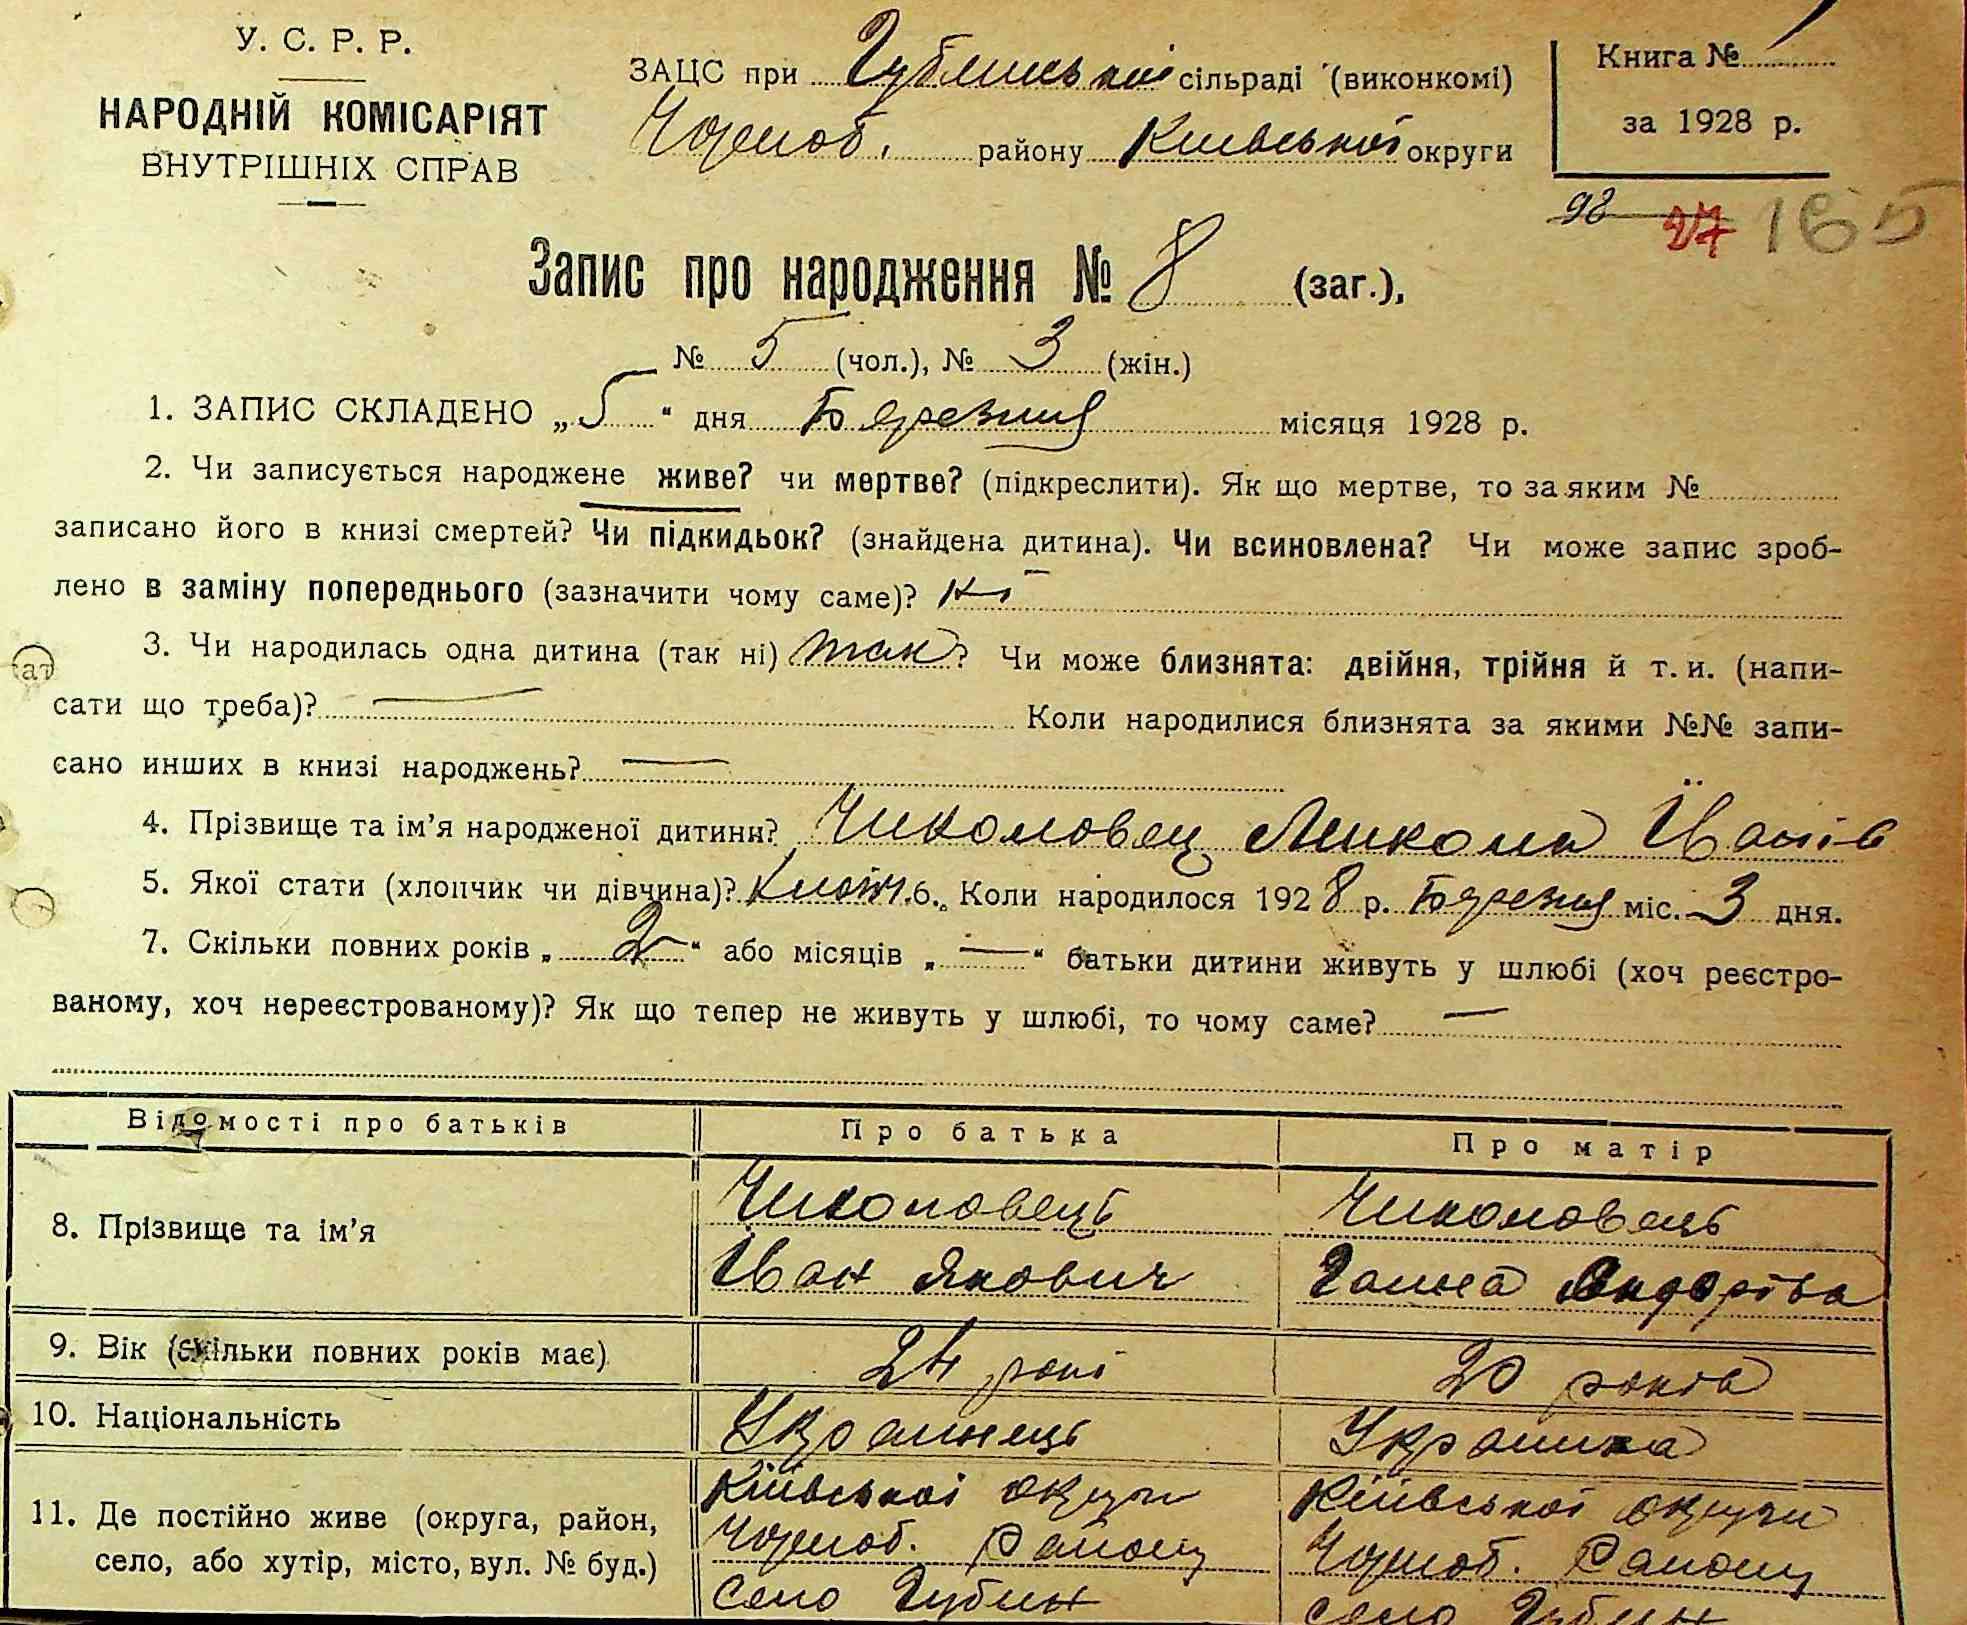 У. С. Р. Р.
НАРОДНІЙ КОМІСАРІЯТ
ВНУТРІШНІХ СПРАВ
ЗАЦС при Губинської сільраді (виконкомі)
Чорноб. району Київської округи
Книга №
за 1928 р.
98 27 165
Запис про народження № 8 (заг.),
№ 5 (чол.), № 3 (жін.)
1. ЗАПИС СКЛАДЕНО „ 5 “ дня Березня місяця 1928 р.
2. Чи записується народжене живе? чи мертве? (підкреслити). Як що мертве, то за яким №
записано його в книзі смертей? Чи підкидьок? (знайдена дитина). Чи всиновлена? Чи може запис зроб-
лено в заміну попереднього (зазначити чому саме)? Ні
3. Чи народилась одна дитина (так ні) так? Чи може близнята: двійня, трійня й т. и. (напи-
сати що треба)? — Коли народилися близнята за якими №№ запи-
сано инших в книзі народжень? —
4. Прізвище та ім'я народженої дитини? Чиколовец Микола Іванів
5. Якої стати (хлопчик чи дівчина)? 6. Коли народилося 1928 р. Березня міс. 3 дня.
7. Скільки повних років „ 2 “ або місяців „ — “ батьки дитини живуть у шлюбі (хоч реєстро-
ваному, хоч нереєстрованому)? Як що тепер не живуть у шлюбі, то чому саме? —
Відомості про батьків
Про батька
Про матір
8. Прізвище та ім'я
Чиколовець
Іван Якович
Чиколовець
Ганна
9. Вік (скільки повних років має)
24 рокі
20 років
10. Національність
Українець
Українка
11. Де постійно живе (округа, район,
село, або хутір, місто, вул. № буд.)
Київської округи
Чорноб. Району
село Губин
Київської округи
Чорноб. Району
село Губин